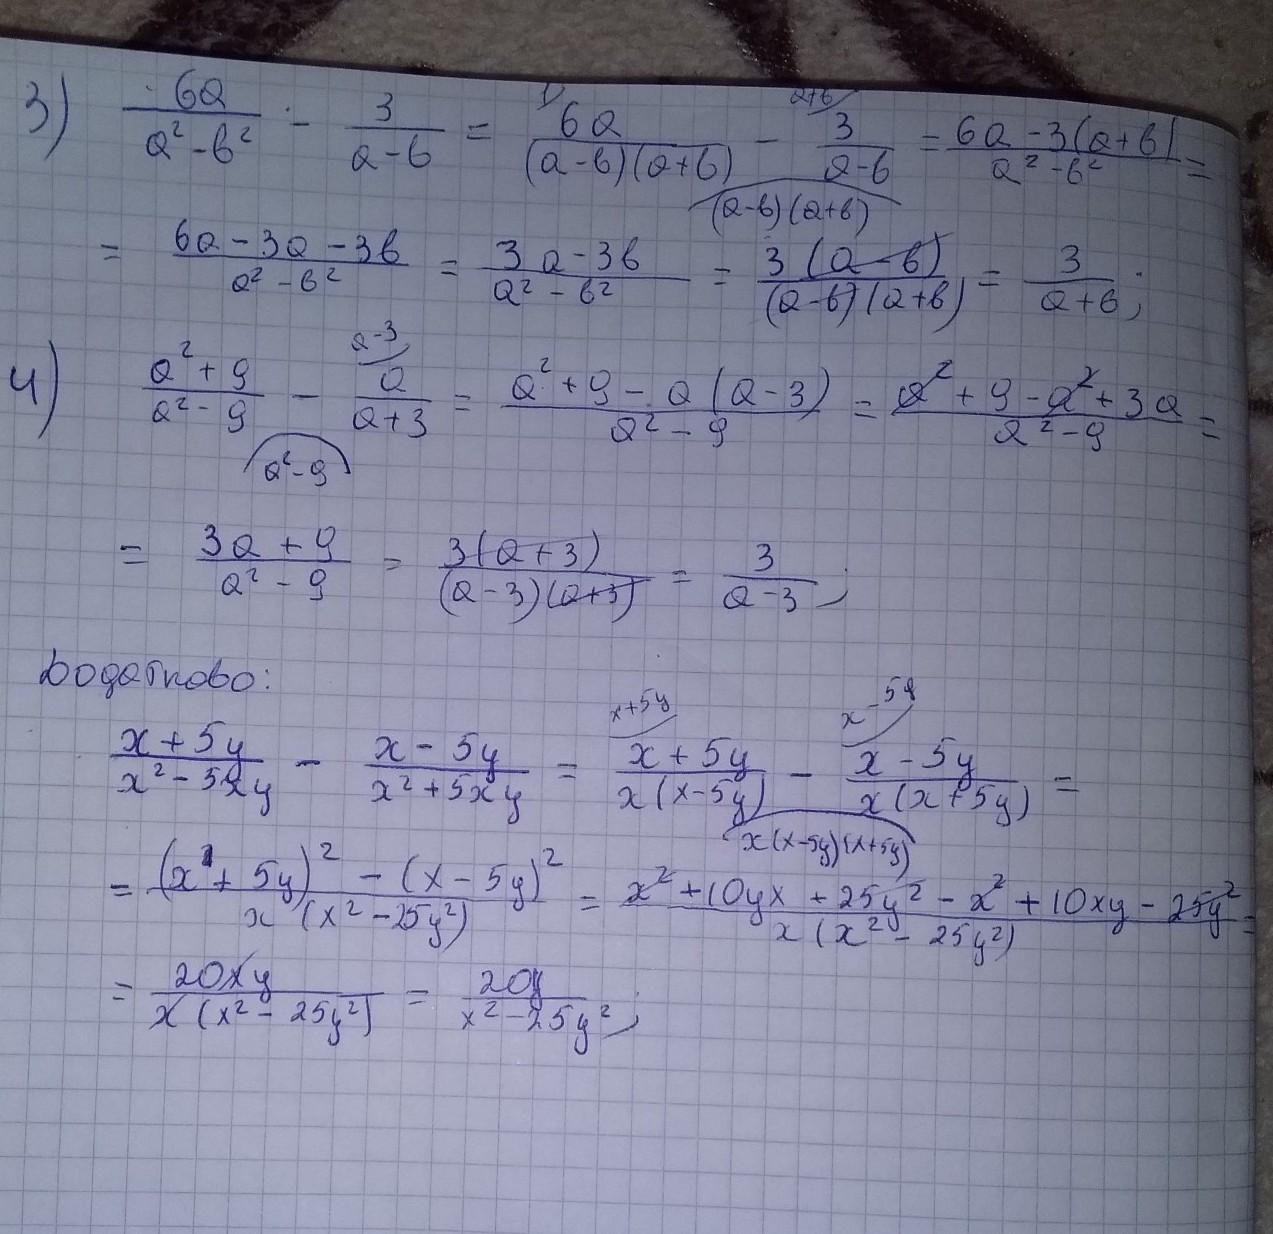 3) 6a/(a²-b²) - 3/(a-b) = 6a/((a-b)(a+b)) - 3/(a-b) = (6a-3(a+b))/(a²-b²) =
1) a+b
(a-b)(a+b)
= (6a-3a-3b)/(a²-b²) = (3a-3b)/(a²-b²) = 3(a-b)/((a-b)(a+b)) = 3/(a+b);
a-3
4) (a²+9)/(a²-9) - a/(a+3) = (a²+9-a(a-3))/(a²-9) = (a²+9-a²+3a)/(a²-9) =
a²-9
= (3a+9)/(a²-9) = 3(a+3)/((a-3)(a+3)) = 3/(a-3);
Додатково:
x+5y x-5y
(x+5y)/(x²-5xy) - (x-5y)/(x²+5xy) = (x+5y)/(x(x-5y)) - (x-5y)/(x(x+5y)) =
x(x-5y)(x+5y)
= ((x+5y)²-(x-5y)²)/(x(x²-25y²)) = (x²+10yx+25y²-x²+10xy-25y²)/(x(x²-25y²)) =
= 20xy/(x(x²-25y²)) = 20y/(x²-25y²);